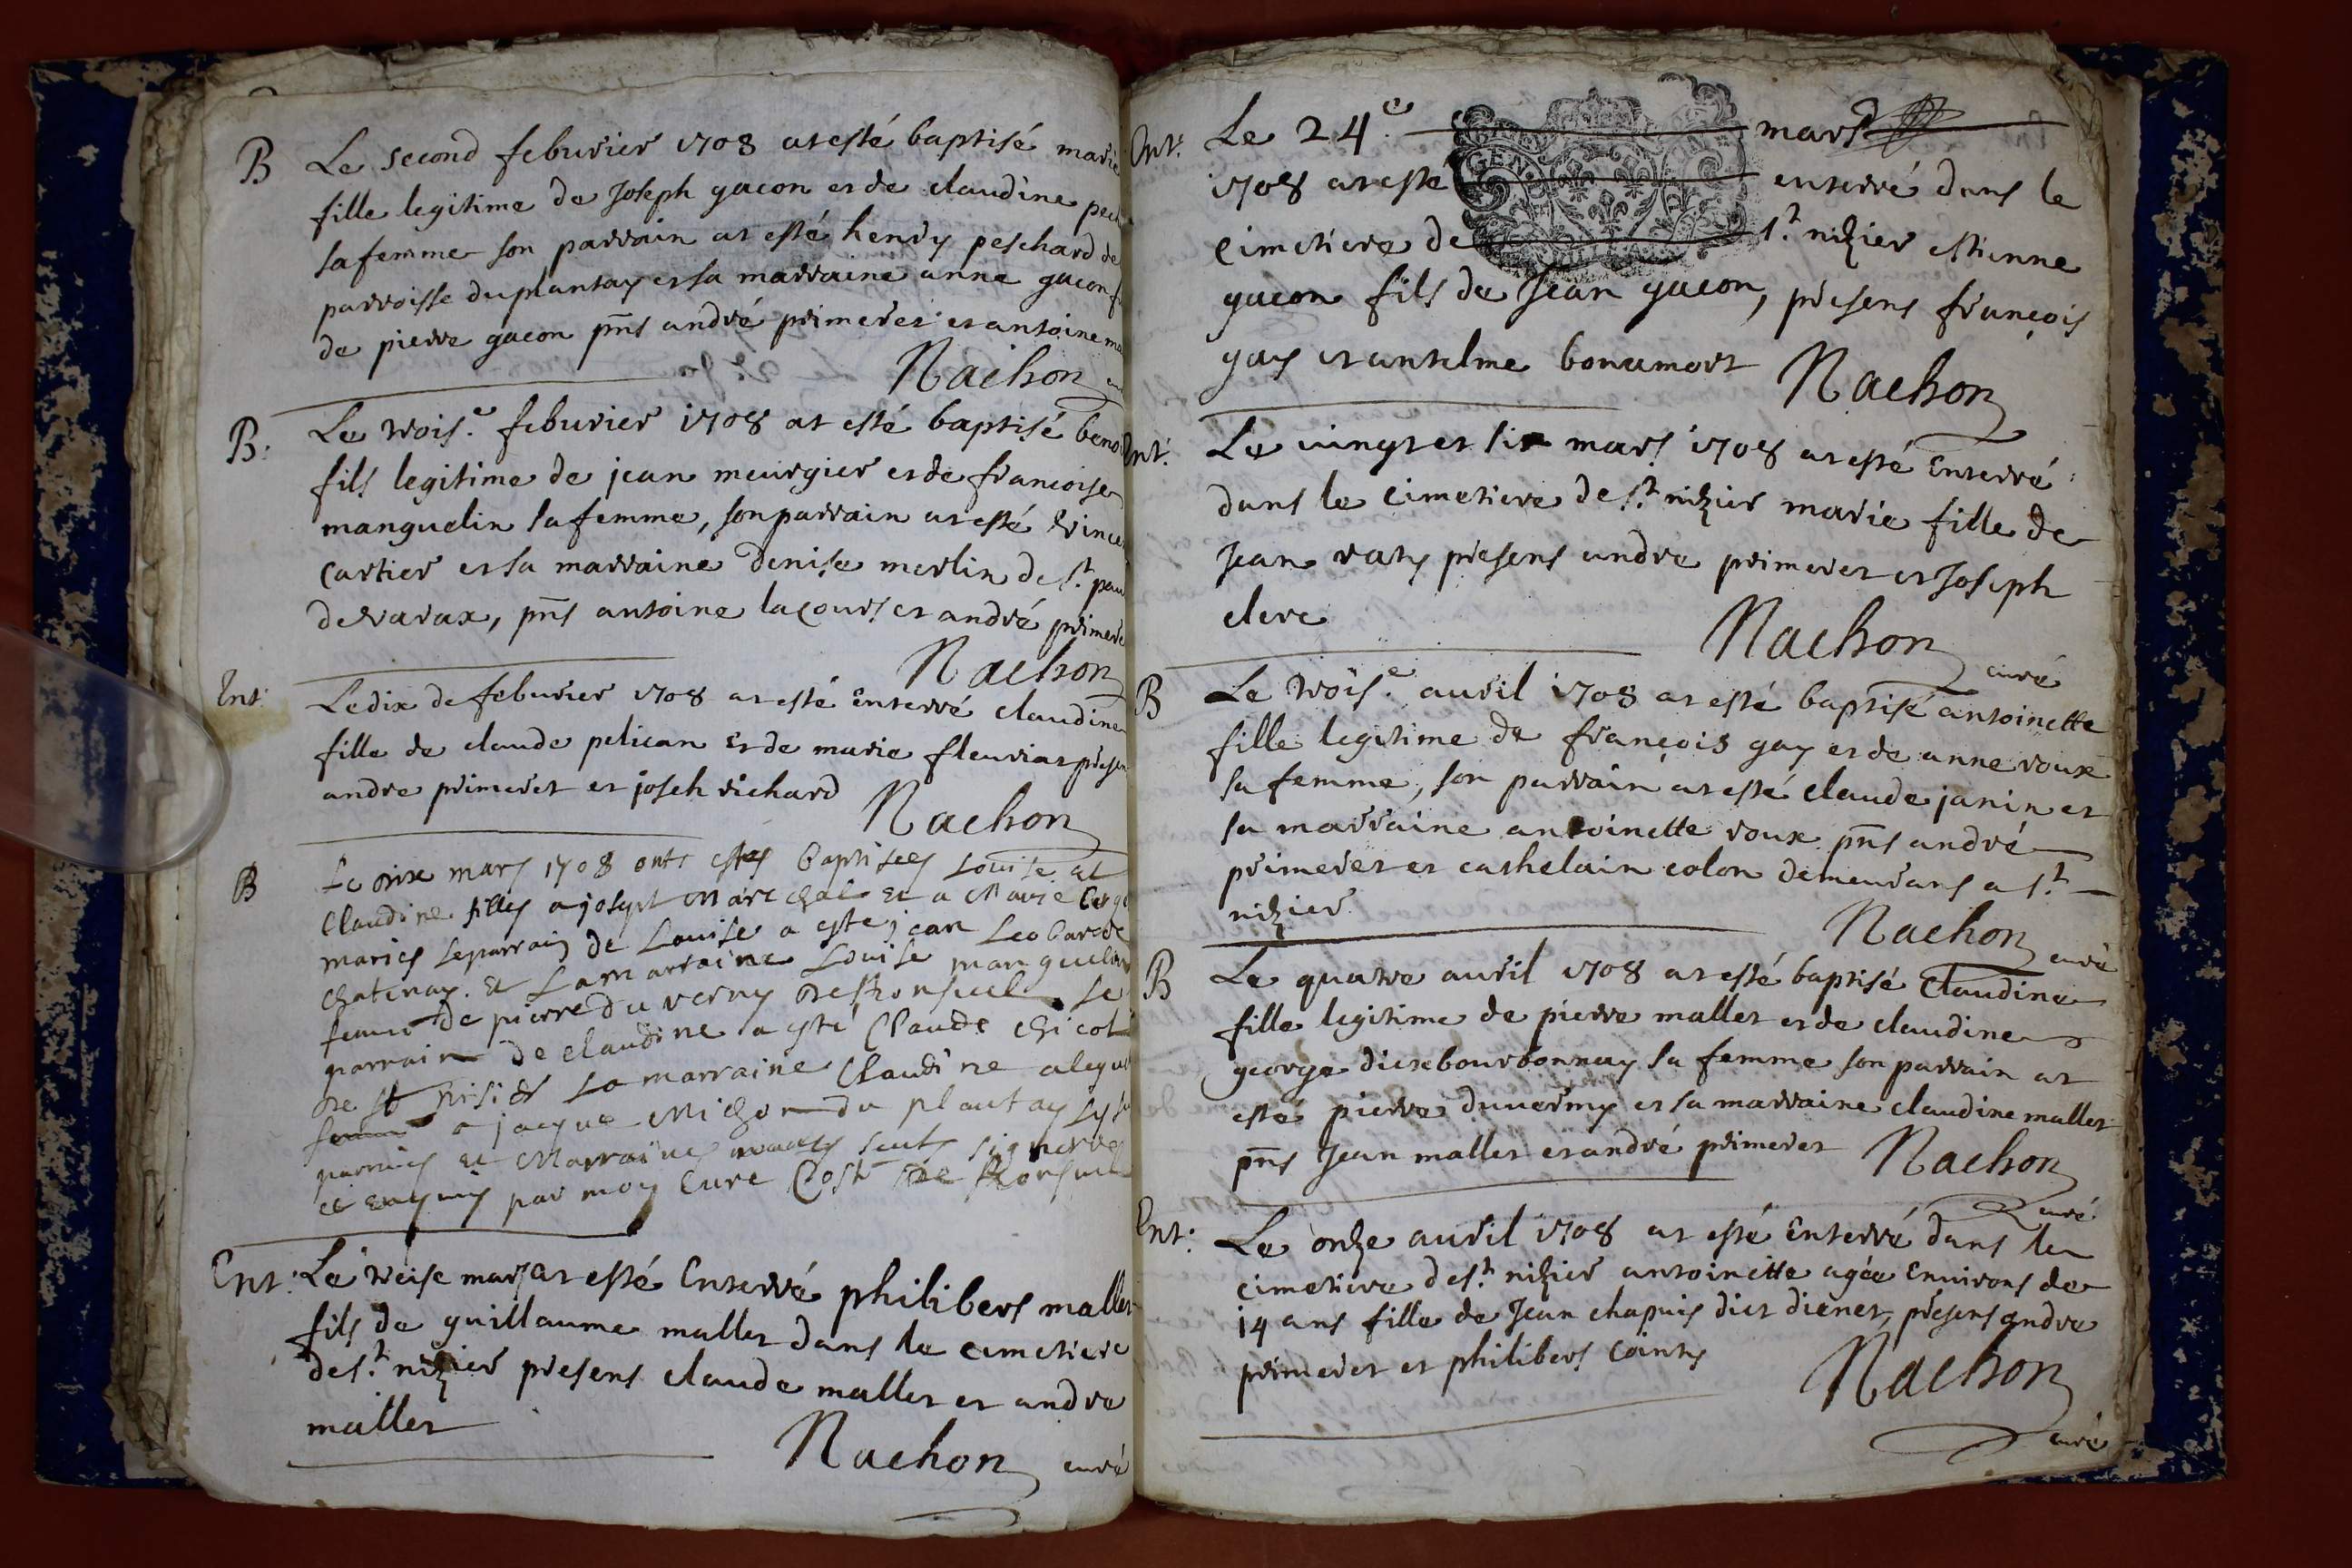 B Le second feburier 1708 at esté baptisé marie
fille legitime de Joseph gacon et de claudine
sa femme son parrain at esté henry peschard de
parroisse du plantay et sa marraine anne gacon
de pierre gacon pnts andré primeret et antoine
Nachon
B. Le trois.e feburier 1708 at esté baptisé
fils legitime de jean meurgier et de francoise
manguelin sa femme, son parrain at esté
cartier et sa marraine denise merlin de st. paul
de varax, pnts antoine lacour et andré
Nachon
Ent: Le dix de feburier 1708 at esté enterré claudine
fille de claude pelican et de marie fleuriat
andre primeret et joseh richard
Nachon
B Le onze mars 1708 onts estes baptisees Louise et
Claudine filles a joseph Marechal et a Marie
maries le parrain de Louise a este jean
chatenay. et La marraine Louise manguelin
femme de pierre du verny de Ronsuel le
parrain de claudine a esté Claude chicot
de st nisier la marraine Claudine
femme a jacque Michon du plantay
parrains et Marraines
par moy Cure Cost de Ronsuel
Ent: Le treise mars at esté Enterré philibert mallet
fils de guillaume mallet dans le cimetiere
de st. nizier presens claude mallet et andre
mallet
Nachon curé
Ent: Le 24.e mars
1708 at esté enterré dans le
cimetiere de st. nizier estienne
gacon fils de Jean gacon, presens françois
gay et antelme bonamort
Nachon
Ent: Le vingt et six mars 1708 at esté Enterré
dans le cimetiere de st. nizier marie fille de
Jean raty presens andre primeret et Joseph
clerc
Nachon curé
B Le trois.e auril 1708 at esté baptisé antoinette
fille legitime de françois gay et de anne roux
sa femme, son parrain at esté claude janin et
sa marraine antoinette roux pnts andré
primeret et cathelain colon demeurans a st.
nizier
Nachon curé
B Le quatre auril 1708 at esté baptisé Claudine
fille legitime de pierre mallet et de claudine
george dict bourbonnay sa femme son parrain at
esté pierre duuerny et sa marraine claudine mallet
pnts Jean mallet et andré primeret
Nachon curé
Ent: Le onze auril 1708 at esté Enterré dans le
cimetiere de st. nizier antoinette agée Enuirons de
14 ans fille de Jean chapuis dict dienet, presens andre
primeret et philibert
Nachon
curé